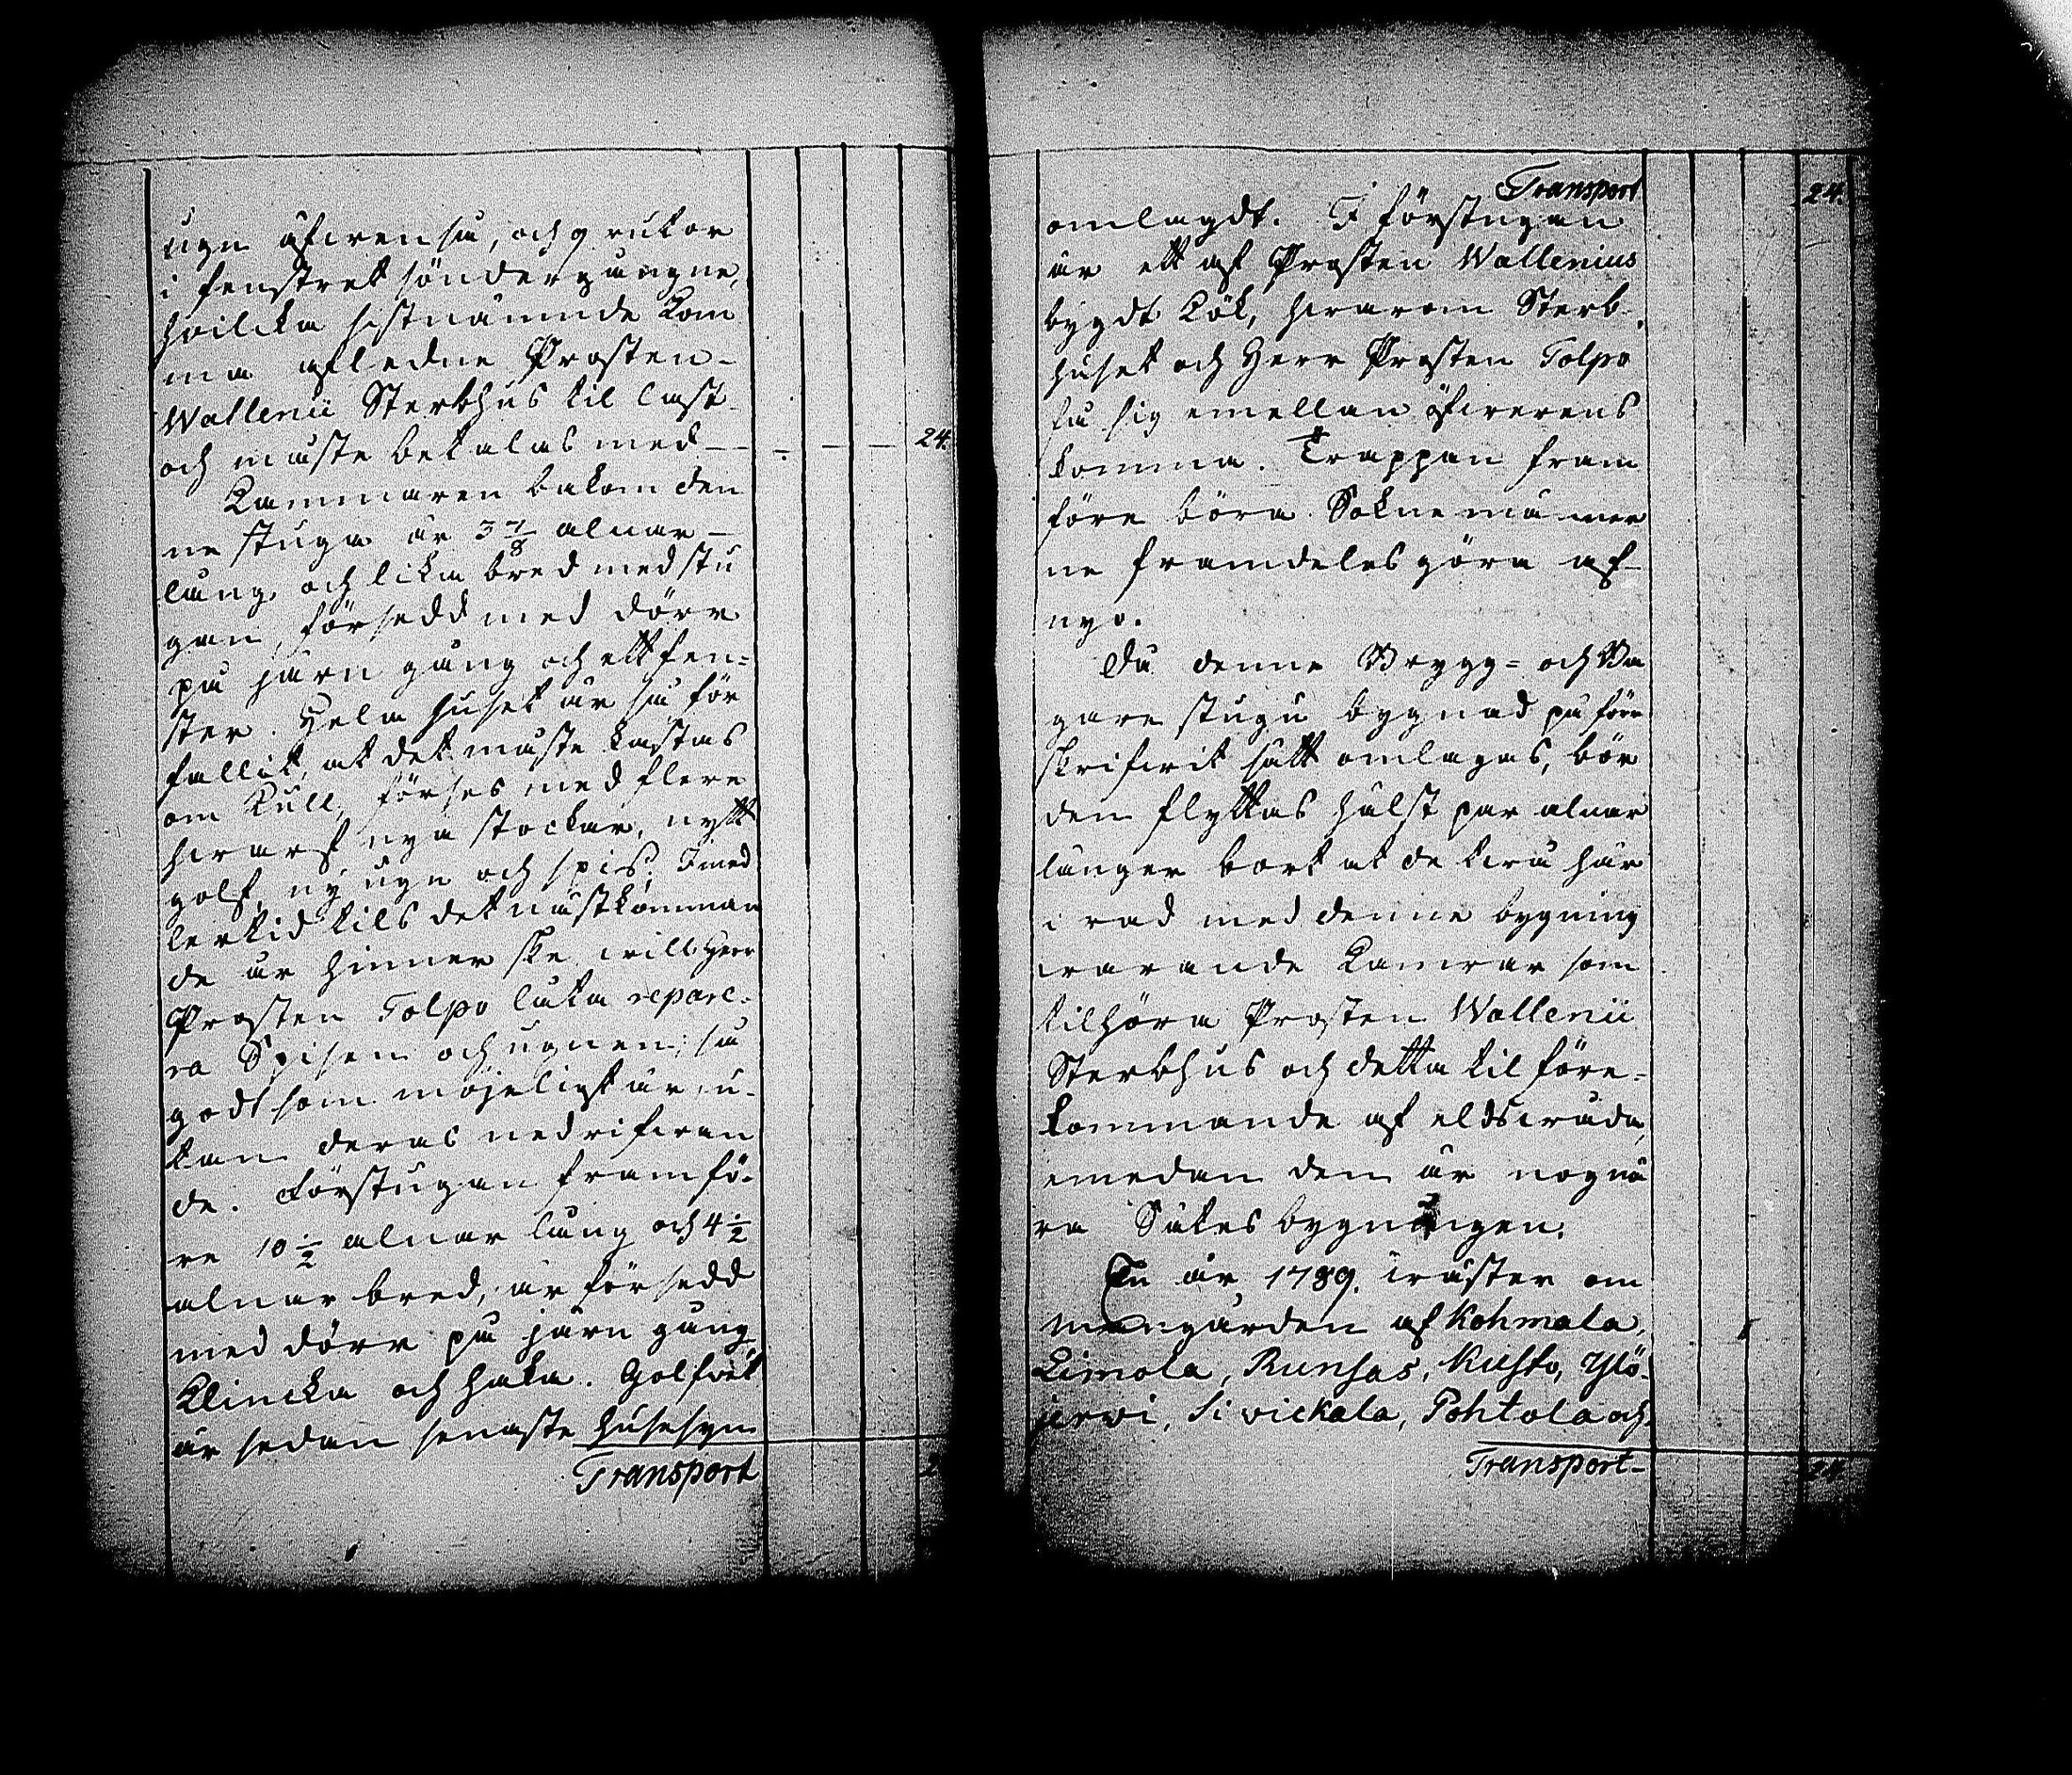 ugn äfwen så, och 9 rutor
i fenstret söndergångne,
hvilcka sistnämnde kom
ma afledne Prosten-
Wallenii Sterbhus til last
och måste betalas med — — — — 24.
Kammaren bakom den
ne stuga är 3 7/8 alnar —
lång, och lika bred med stu
gan, försedd med dörr
på järn gång och ett fen=
ster. Hela huset är så för
fallit, at det måste kastas
om kull, förses med flere
hwarf nya stockar, nytt
golf, ny ugn och spis. Imed
lertid tils det nästkomman
de år hinner ske, will Herr
Prosten Tolpo låta repare=
ra Spisen och ugnen, så
godt som möjeligt är, u-
tan deras nedrifwan
de. Förstugan framfö-
re 10 1/2 alnar lång och 4 1/2
alnar bred, är försedd
med dörr på järn gång
klincka och haka. Golfwet
är sedan senaste husesyn
Transport 2
Transport 24.
omlagdt. I förstugan
är ett af Prosten Wallenius
bygdt kök, hwarom Sterb-
huset och Herr Prosten Tolpo
få sig emellan öfwerens
komma. Trappan fram
före böra Sokнemänner
ne framdeles göra af
nyo.
Då denne Brygg= och Ba
gare stugu bygnad på före
skrifwit sätt omlagas, bör
den flyttas hälst par alnar
länger bort at de twå här
i rad med denne bygning
warande kamrar som
tilhöra Prosten Wallenii
Sterbhus och detta til före=
kommande af eldswåda,
emedan den är nog nä
ra Sätesbygningen.
En år 1789. wäster om
mangården af Kohmala,
Limola, Runsas, Kusto, Ylö-
jerwi, Siwickala, Pohtola och
Transport- 24